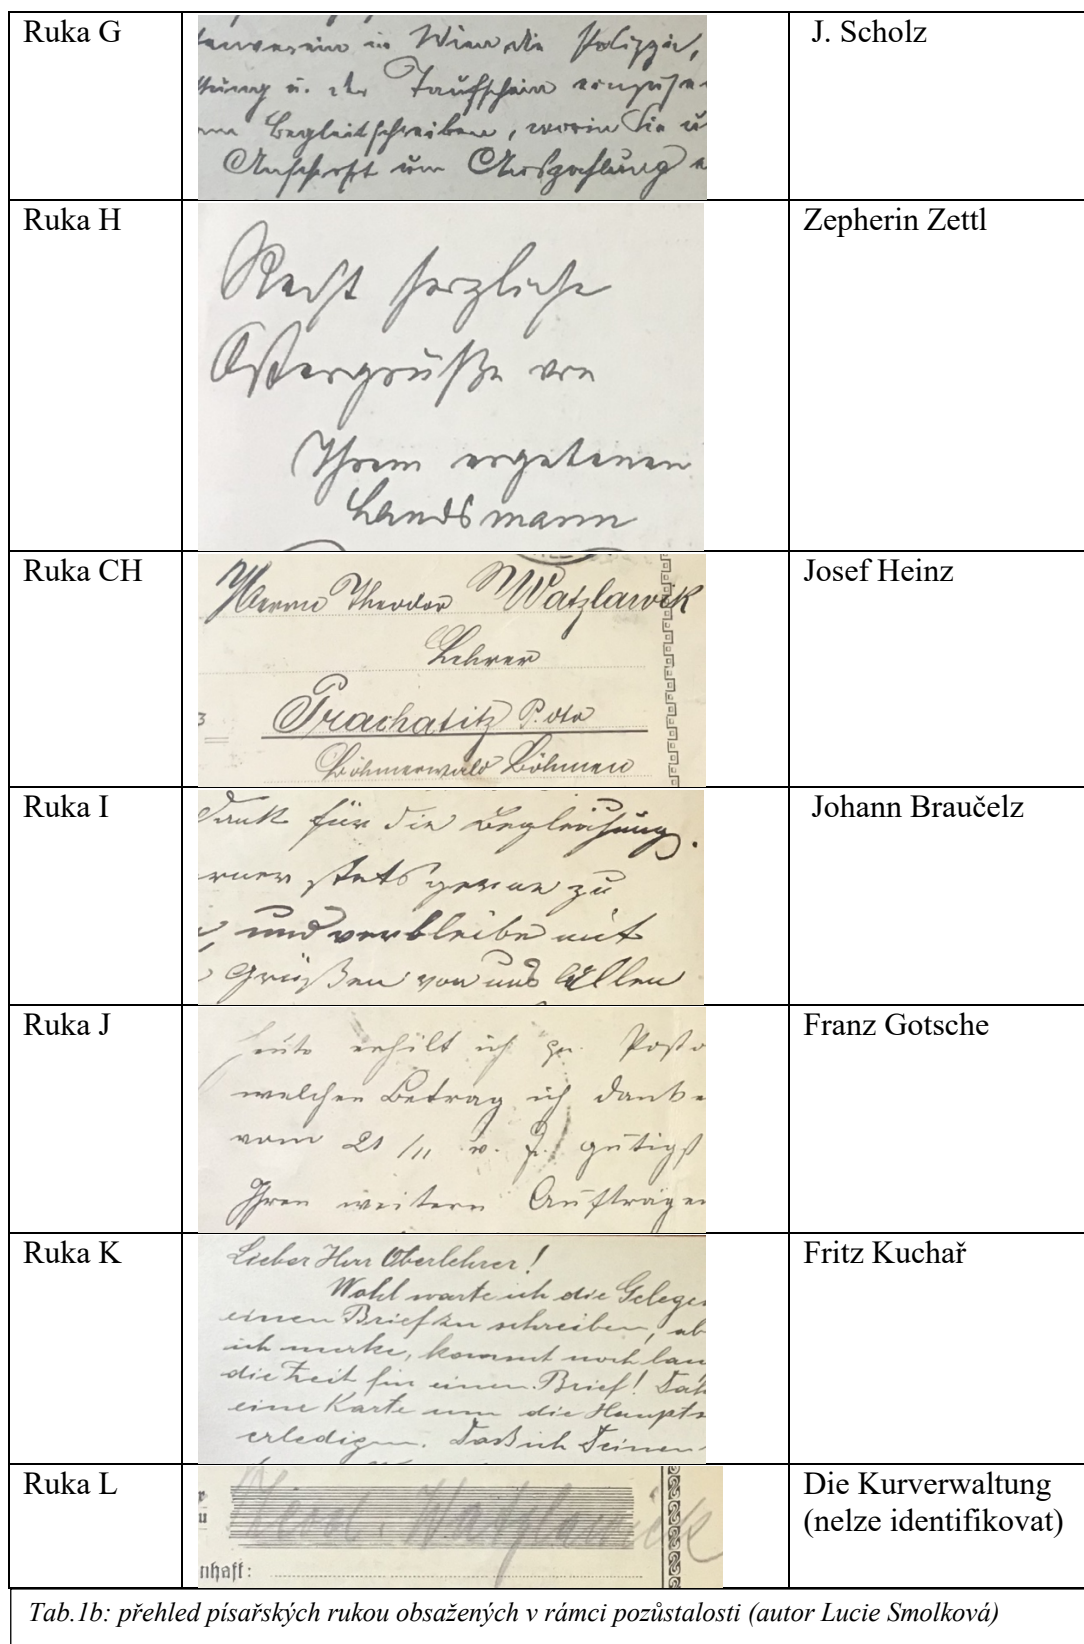 Ruka G
verein in Wien die Polizze,
u. der Taufschein einzuse
Begleitschreiben, worin Sie u
Anschrift um Auszahlung e
J. Scholz
Ruka H
Recht herzliche
Ostergrüße von
Ihrem ergebenen
Landsmann
Zepherin Zettl
Ruka CH
Herrn Theodor Watzlawik
Lehrer
3 Prachatitz P. dto
Böhmerwald Böhmen
Josef Heinz
Ruka I
Dank für die Begleichung.
erner stets gerne zu
und verbleibe mit
Grüßen von uns Allen
Johann Braučelz
Ruka J
heute erhielt ich pr. Posta
welchen Betrag ich danke
vom 21/11 v. J. gütigst
Ihren weitern Aufträgen
Franz Gotsche
Ruka K
Lieber Herr Oberlehrer!
Wohl warte ich die Gelege
einen Brief zu schreiben, ab
ich merke, kommt noch lan
die Zeit für einen Brief! Dah
eine Karte um die Haupts
erledigen. Daß ich Deinen
Fritz Kuchař
Ruka L
Theod. Watzlawick
nhaft:
Die Kurverwaltung
(nelze identifikovat)
Tab.1b: přehled písařských rukou obsažených v rámci pozůstalosti (autor Lucie Smolková)